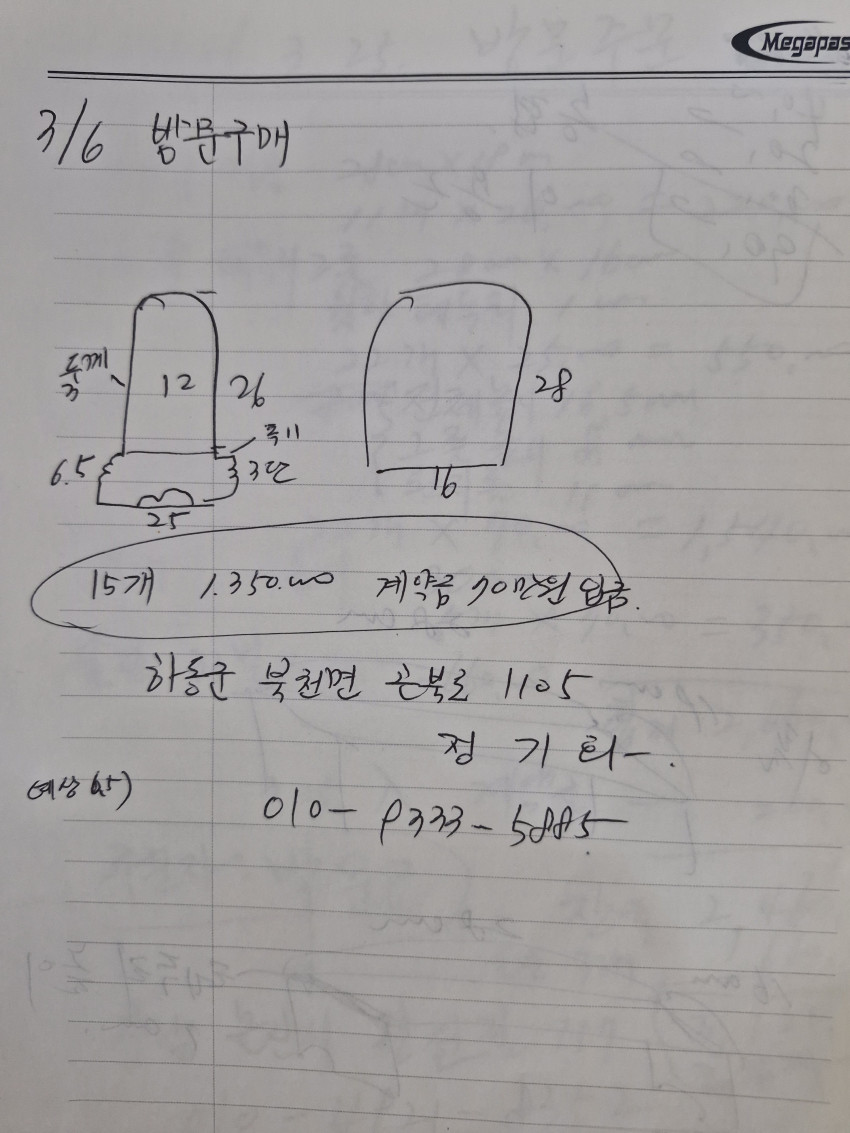 Megapas
3/6 방문구매
두께
3
12
26
폭11
6.5
3단
25
28
16
15개 1.350.000 계약금 70만원 입금.
하동군 북천면 곤북로 1105
정 기 희.
(예상 6.5)
010-9333-5885